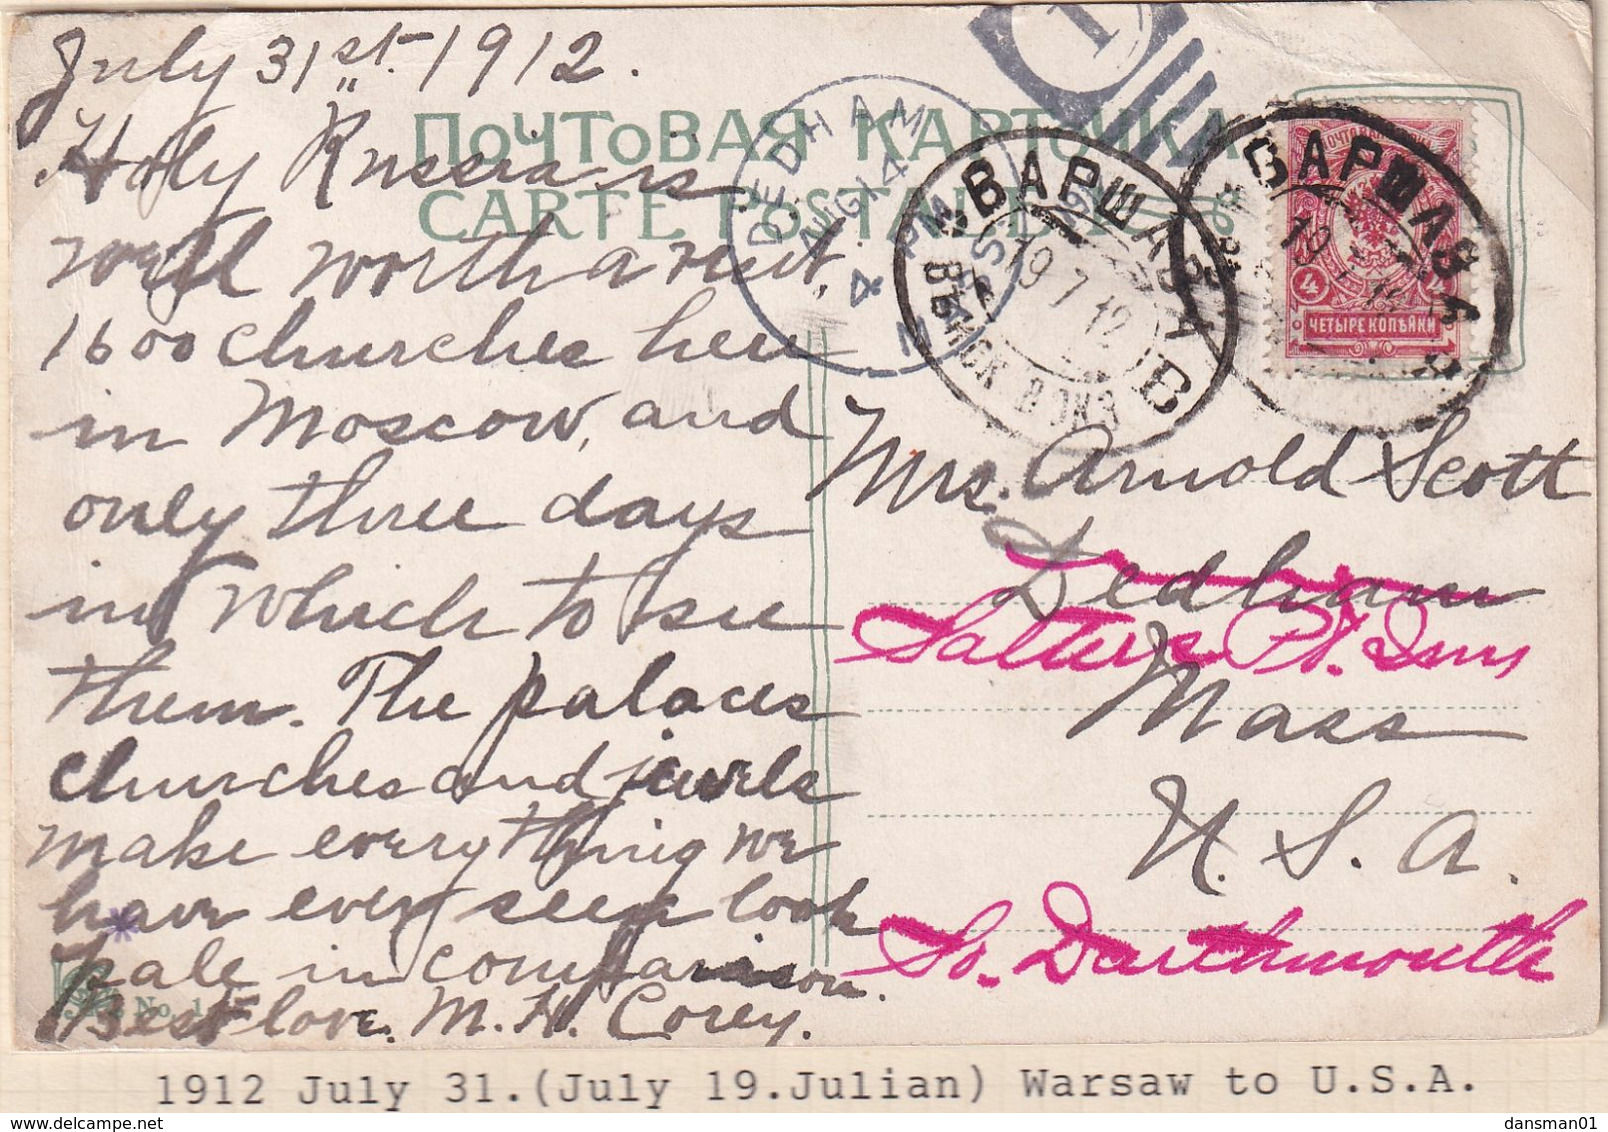 July 31st. 1912.
Holy Russia is
well worth a visit,
1600 churches here
in Moscow, and
only three days
in which to see
them. The palaces
churches and jewels
make everything we
have ever seen look
pale in comparison.
Best love. M. H. Corey.
No. 1
ПОЧТОВАЯ КАРТОЧКА
CARTE POSTALE
DEDHAM
AUG 14
4 PM
MASS
1
ВАРШАВА
19 7 12
В
ВѢНСК ВОКЗ
ВАРШАВА
19
ПОЧТОВАЯ
4 4
ЧЕТЫРЕ КОПѢЙКИ
Mrs. Arnold Scott
Dedham
Salters Pt. Inn
Mass
U. S. A.
So. Dartmouth
1912 July 31.(July 19.Julian) Warsaw to U.S.A.
dansman01